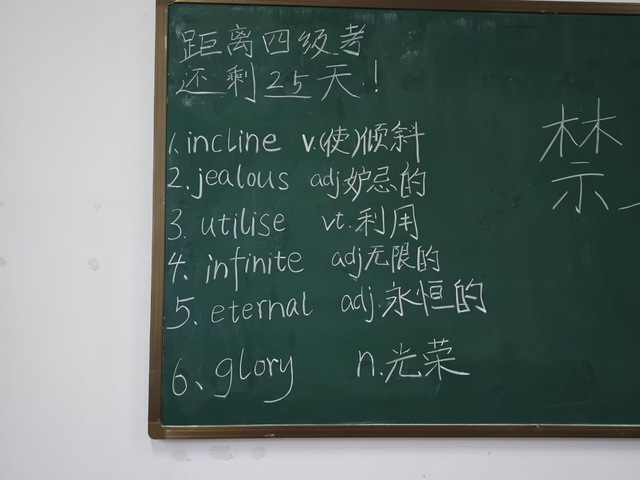 距离四级考
还剩25天!
1.incline v.(使)倾斜
2.jealous adj妒忌的
3. utilise vt.利用
4. infinite adj无限的
5. eternal adj.永恒的
6、glory n.光荣
禁